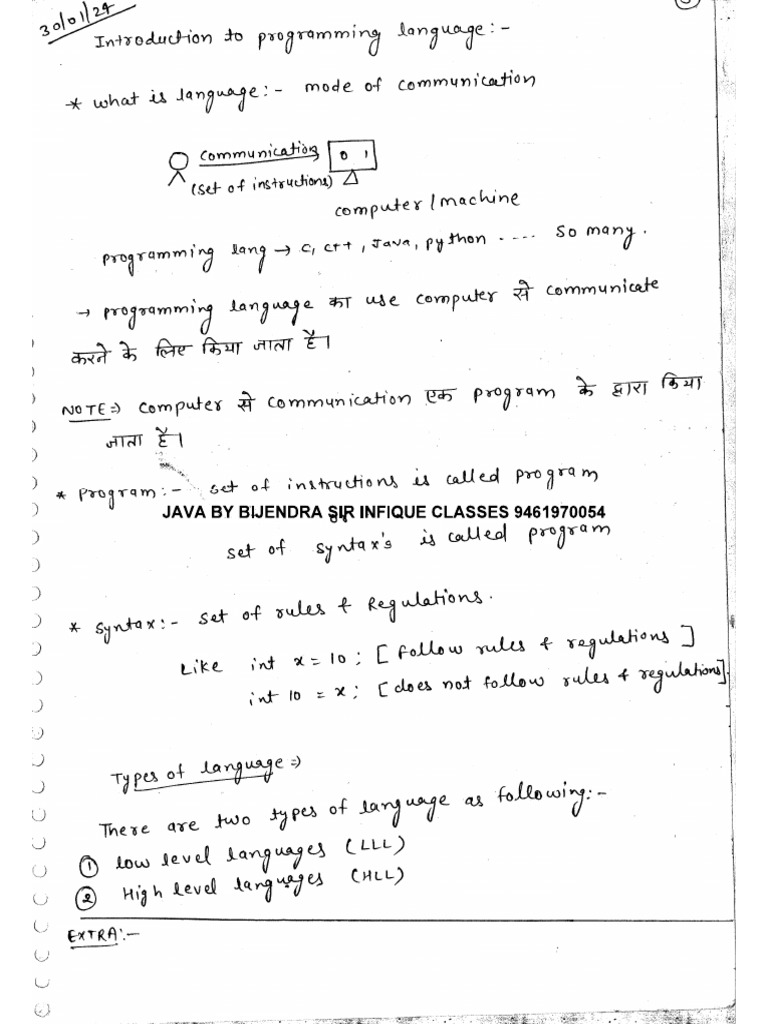 30/01/24
Introduction to programming language:-
* What is language:- mode of communication
communication 0 1
(set of instructions)
computer/machine
programming lang → C, C++, Java, python ..... so many.
→ programming language का use computer से communicate
करने के लिए किया जाता है।
NOTE:⇒ computer से communication एक program के द्वारा किया
जाता है।
* Program:- set of instructions is called program
JAVA BY BIJENDRA SIR INFIQUE CLASSES 9461970054
set of syntax's is called program
* Syntax:- set of rules & Regulations.
Like int x = 10; [follow rules & regulations]
int 10 = x; [does not follow rules & regulations].
Types of language ⇒
There are two types of language as following:-
① low level languages (LLL)
② High level languages (HLL)
EXTRA:-